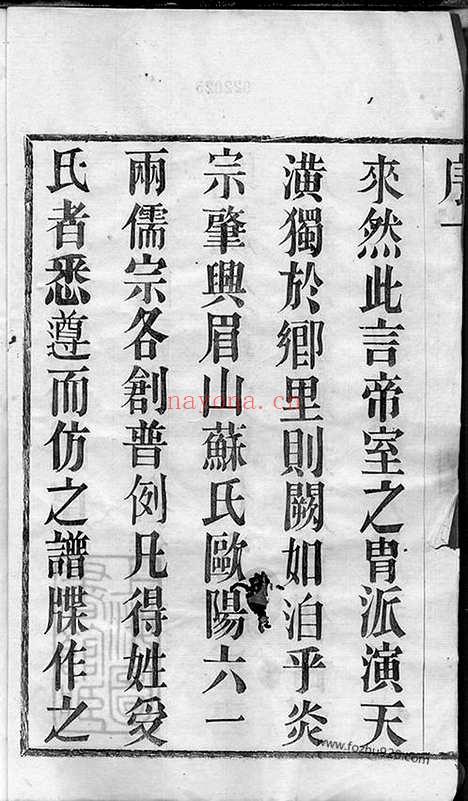 序一
來然此言帝室之胄派演天
潢獨於鄉里則闕如洎乎炎
宗肇興眉山蘇氏歐陽六一
兩儒宗各創普例凡得姓受
氏者悉遵而仿之譜牒作之
022025
nayona.cn
www.fozhu920.com